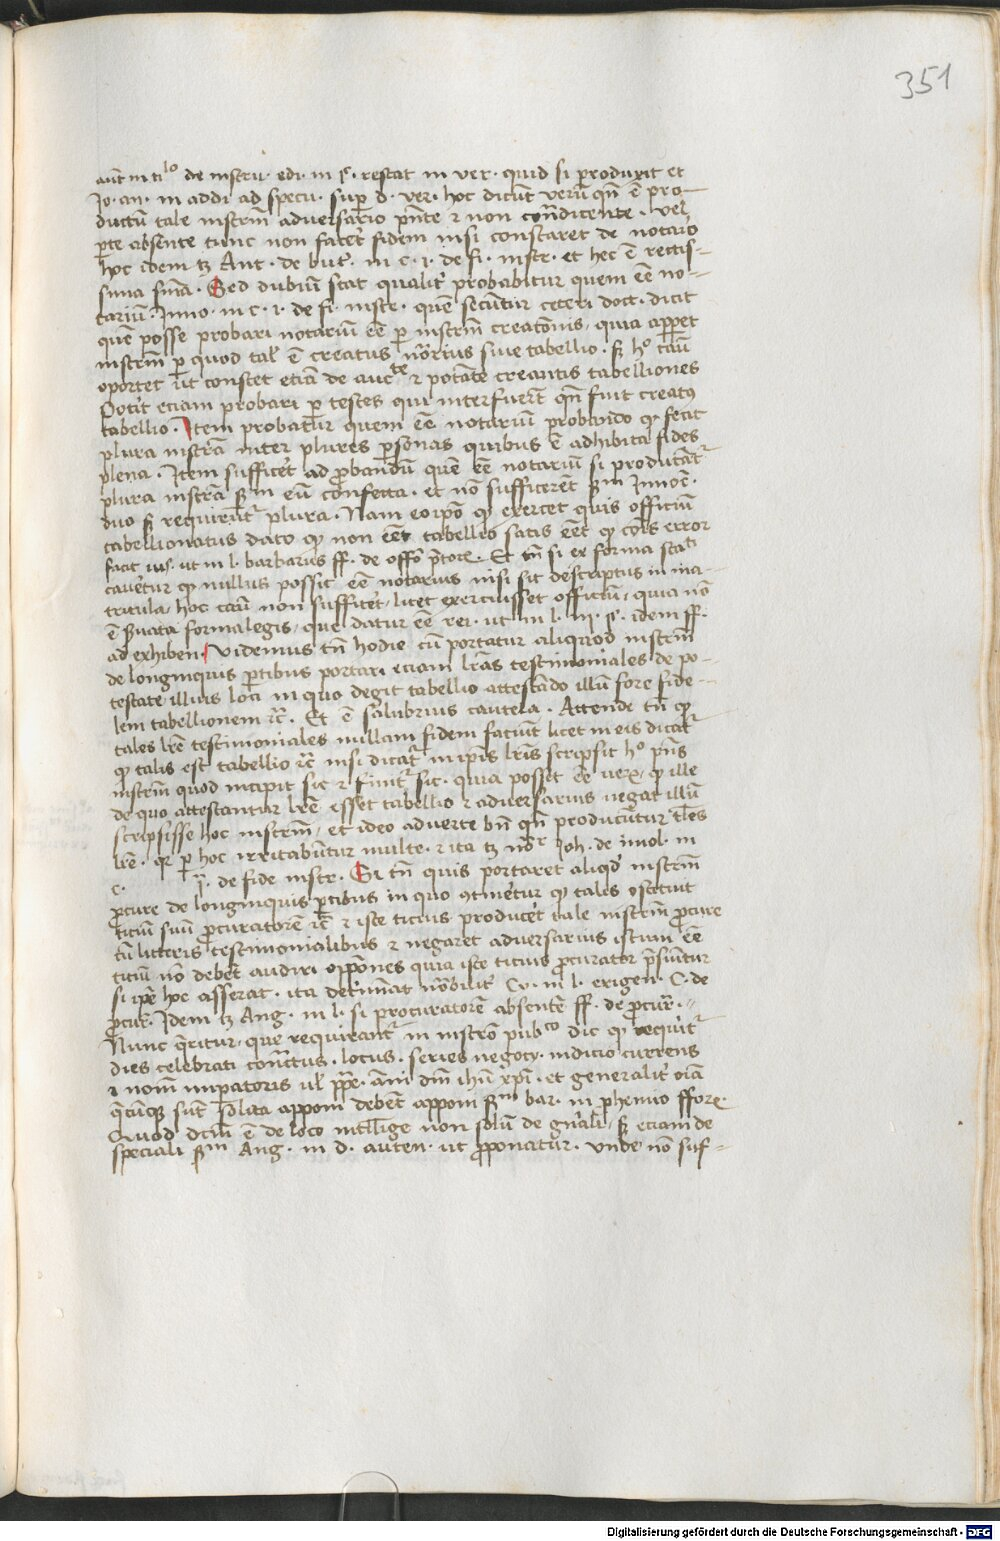 351
aūt in ti^lo de instru· edi· in §· restat in ver· quid si produxit et
Jo· an· in addi· ad specu· sup̱ d· ver· hoc dicūt verū qn̄ ē pro-
ductū tale instrm̄ adversario pn̄te ⁊ non cōn̄dicente · vel
p̱te absente tunc non facet fidem nisi constaret de notario
hoc idem tꝫ Ant· de but̕· in c· i· de fi· instr· et hec ē rectis-
sima sn̄ia · Sed dubiū stat qualit̕ probabitur quem eē no-
tariū· Inno· in c· i· de fi· instr· quē secūtur ceteri doct· dicit
quē posse probari notariū eē p̱ instrm̄ creatōnis, quia app̱et
instrm̄ p̱ quod tal̕ ē creatus nōrius sive tabellio · sꝫ h^o casū
oportet ut constet etiā de auc^te ⁊ potāte creantis tabelliones
Potit eciam probari p̱ testes qui interfuerūt qn̄ fuit creatꝰ
tabellio · Item probatur quem eē notariū probando ꝙ fecit
plura instrā inter plures p̱sonas quibus ē adhibita fides
plena · Item sufficet ad ꝓbandū quē eē notariū si producāt̕
plura instrā s^m eū confecta · et nō sufficeret s^m Innoc̄·
duo sꝫ requirūt̕ plura · Nam eo ip̄o ꝙ exercet quis officiū
tabellionatus dato ꝙ non eēt tabellio satis eēt ꝙ cōis error
facit ius· ut in l· barbarius ff· de offō p̄tor̄· Et tn̄ si ex forma stati
cavetur ꝙ nullus possit eē notarius nisi sit descriptus in ma-
tricula, hoc casū non sufficet, licet exercuisset officiū, quia nō
ē s̱vata forma legis, que datur eē rei· ut in l· iij· §· idem ff·
ad exhiben· Videmus tn̄ hodie cū portatur aliquod instrm̄
de longinquis p̱tibus portari eciam lr̄as testimoniales de po-
testate illius loci in quo degit tabellio attestādo illū fore fide-
lem tabellionem ⁊c̄· Et ē salubrius cautela · Attende tn̄ ꝙ
tales lr̄e testimoniales nullam fidem faciūt licet in eis dicat̕
ꝙ talis est tabellio ⁊c̄ nisi dicat̕ in ip̄is lr̄is scripsit h^o pn̄s
instrm̄ quod incipit sic ⁊ finit̕ sic· quia posset eē verū, ꝙ ille
de quo attestantur lr̄e esset tabellio ⁊ adversarius negat illū
scripsisse hoc instrm̄, et ideo adverte bn̄ qn̄ producūtur tl̄es
lr̄e· qꝛ p̱ hoc irritabūtur multe· ⁊ ita tꝫ nōr Joh· de imol· in
c· i· de fide instr· Si tn̄ quis portaret aliqd̕ instrm̄
ꝓcure de longinquis p̱tibus in quo ↄtinetur ꝙ tales ↄstituit
ticiū suū ꝓcuratorē ⁊c̄ ⁊ iste ticius producet tale instrm̄ ꝓcure
cū litteris testimonialibus ⁊ negaret adversarius istum eē
titiū nō debet audiri oppōnes quia iste titius ꝓcurator p̄sūitur
si ip̄e hoc asserat· ita det̕minat nōbilit̕ Cy· in l· exigen· C· de
ꝓcur̄· Idem tꝫ Ang· in l· si procuratorē absentē ff· de ꝓcur̄·
Nunc q̄ritur, que requirant̕ in instrō pub^co dic ꝙ requir̕
dies celebrati contctus· locus· series negocy· indicio currens
⁊ nomī inp̱atoris ul̕ pp̄e· an̄i dn̄i ihū xp̄i· et generalit̕ oīa
q̄cūqꝫ sūt solita apponi debēt apponi s^m bar· in p̱hemio ffor̄·
Quod dcm̄ ē de loco intllige non solū de gn̄ali, sꝫ eciam de
speciali s^m Ang· in d· auten· ut ꝓponatur· unde nō suf-
Digitalisierung gefördert durch die Deutsche Forschungsgemeinschaft · DFG